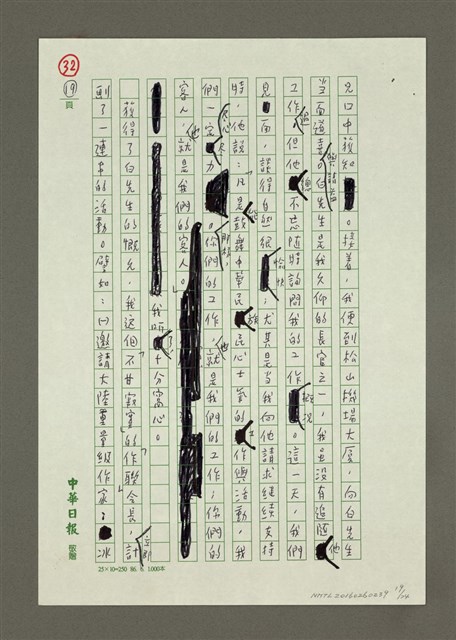 32
19
頁
兄口中獲知。接着,我便到松山機場大廈向白先生
當面道喜與請益。白先生是我久仰的長官之一,我雖沒有追隨他
工作過,但他總不忘隨時詢問我的工作概況。這一天,我們
見面,談得自然很愉快,尤其是當我向他請求繼續支持
時,他說:「凡是能鼓舞中華民族民心士氣的工作與活動,我
們一定盡心盡力。你們的工作,也就是我們的工作;你們的
客人,也就是我們的客人。」
我聽了十分窩心。
獲得了白先生的懇允,我這個不甘寂寞的「作聯會」會長,立即計
劃了一連串的活動。譬如:㈠邀請大陸重量級作家:冰
中華日報
25×10=250 86. 8. 1,000本
NMTL20160260039
19/24